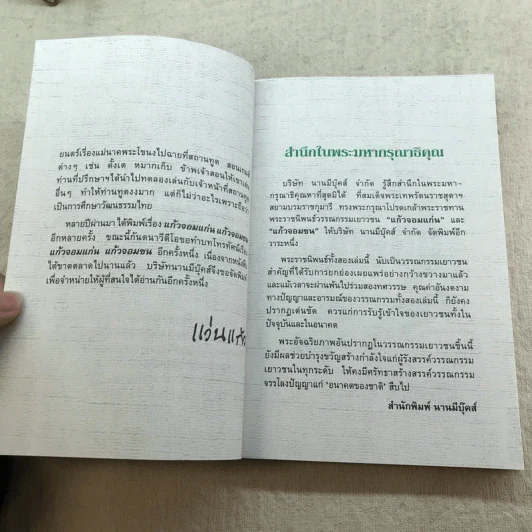 ยนตร์เรื่องแม่นาคพระโขนงไปฉายที่สถานทูต สอนเกมส์
ต่างๆ เช่น ตั้งเต หมากเก็บ ข้าพเจ้าสอนให้เขาเล่น
ท่านที่ปรึกษาฯได้นำไปทดลองเล่นกับเจ้าหน้าที่สถานทูต
อื่นๆ ทำให้ท่านทูตงงมาก แต่ก็ไม่ว่าอะไรเพราะถือว่า
เป็นการศึกษาวัฒนธรรมไทย
หลายปีผ่านมา ได้พิมพ์เรื่อง แก้วจอมแก่น แก้วจอมซน
อีกหลายครั้ง ขณะนี้กันตนาวิดีโอขอทำบทโทรทัศน์เรื่อง
แก้วจอมแก่น แก้วจอมซน อีกครั้งหนึ่ง เนื่องจากหนังสือ
ได้ขาดตลาดไปนานแล้ว บริษัทนานมีบุ๊คส์จึงขอจัดพิมพ์
เพื่อจำหน่ายให้ผู้ที่สนใจได้อ่านกันอีกครั้งหนึ่ง
แว่นแก้ว
สำนึกในพระมหากรุณาธิคุณ
บริษัท นานมีบุ๊คส์ จำกัด รู้สึกสำนึกในพระมหา-
กรุณาธิคุณหาที่สุดมิได้ ที่สมเด็จพระเทพรัตนราชสุดาฯ
สยามบรมราชกุมารี ทรงพระกรุณาโปรดเกล้าพระราชทาน
พระราชนิพนธ์วรรณกรรมเยาวชน “แก้วจอมแก่น” และ
“แก้วจอมซน” ให้บริษัท นานมีบุ๊คส์ จำกัด จัดพิมพ์อีก
วาระหนึ่ง
พระราชนิพนธ์ทั้งสองเล่มนี้ นับเป็นวรรณกรรมเยาวชน
สำคัญที่ได้รับการยกย่องเผยแพร่อย่างกว้างขวางมาแล้ว
และแม้เวลาจะผ่านพ้นไปร่วมสองทศวรรษ คุณค่าอันงดงาม
ทางปัญญาและอารมณ์ของวรรณกรรมทั้งสองเล่มนี้ ก็ยังคง
ปรากฏเด่นชัด ควรแก่การรับรู้เข้าใจของเยาวชนทั้งใน
ปัจจุบันและในอนาคต
พระอัจฉริยภาพอันปรากฏในวรรณกรรมเยาวชนชิ้นนี้
ยังมีผลช่วยบำรุงขวัญสร้างกำลังใจแก่ผู้รังสรรค์วรรณกรรม
เยาวชนในทุกระดับ ให้คงมีศรัทธาสร้างสรรค์วรรณกรรม
จรรโลงปัญญาแก่ ‘อนาคตของชาติ’ สืบไป
สำนักพิมพ์ นานมีบุ๊คส์